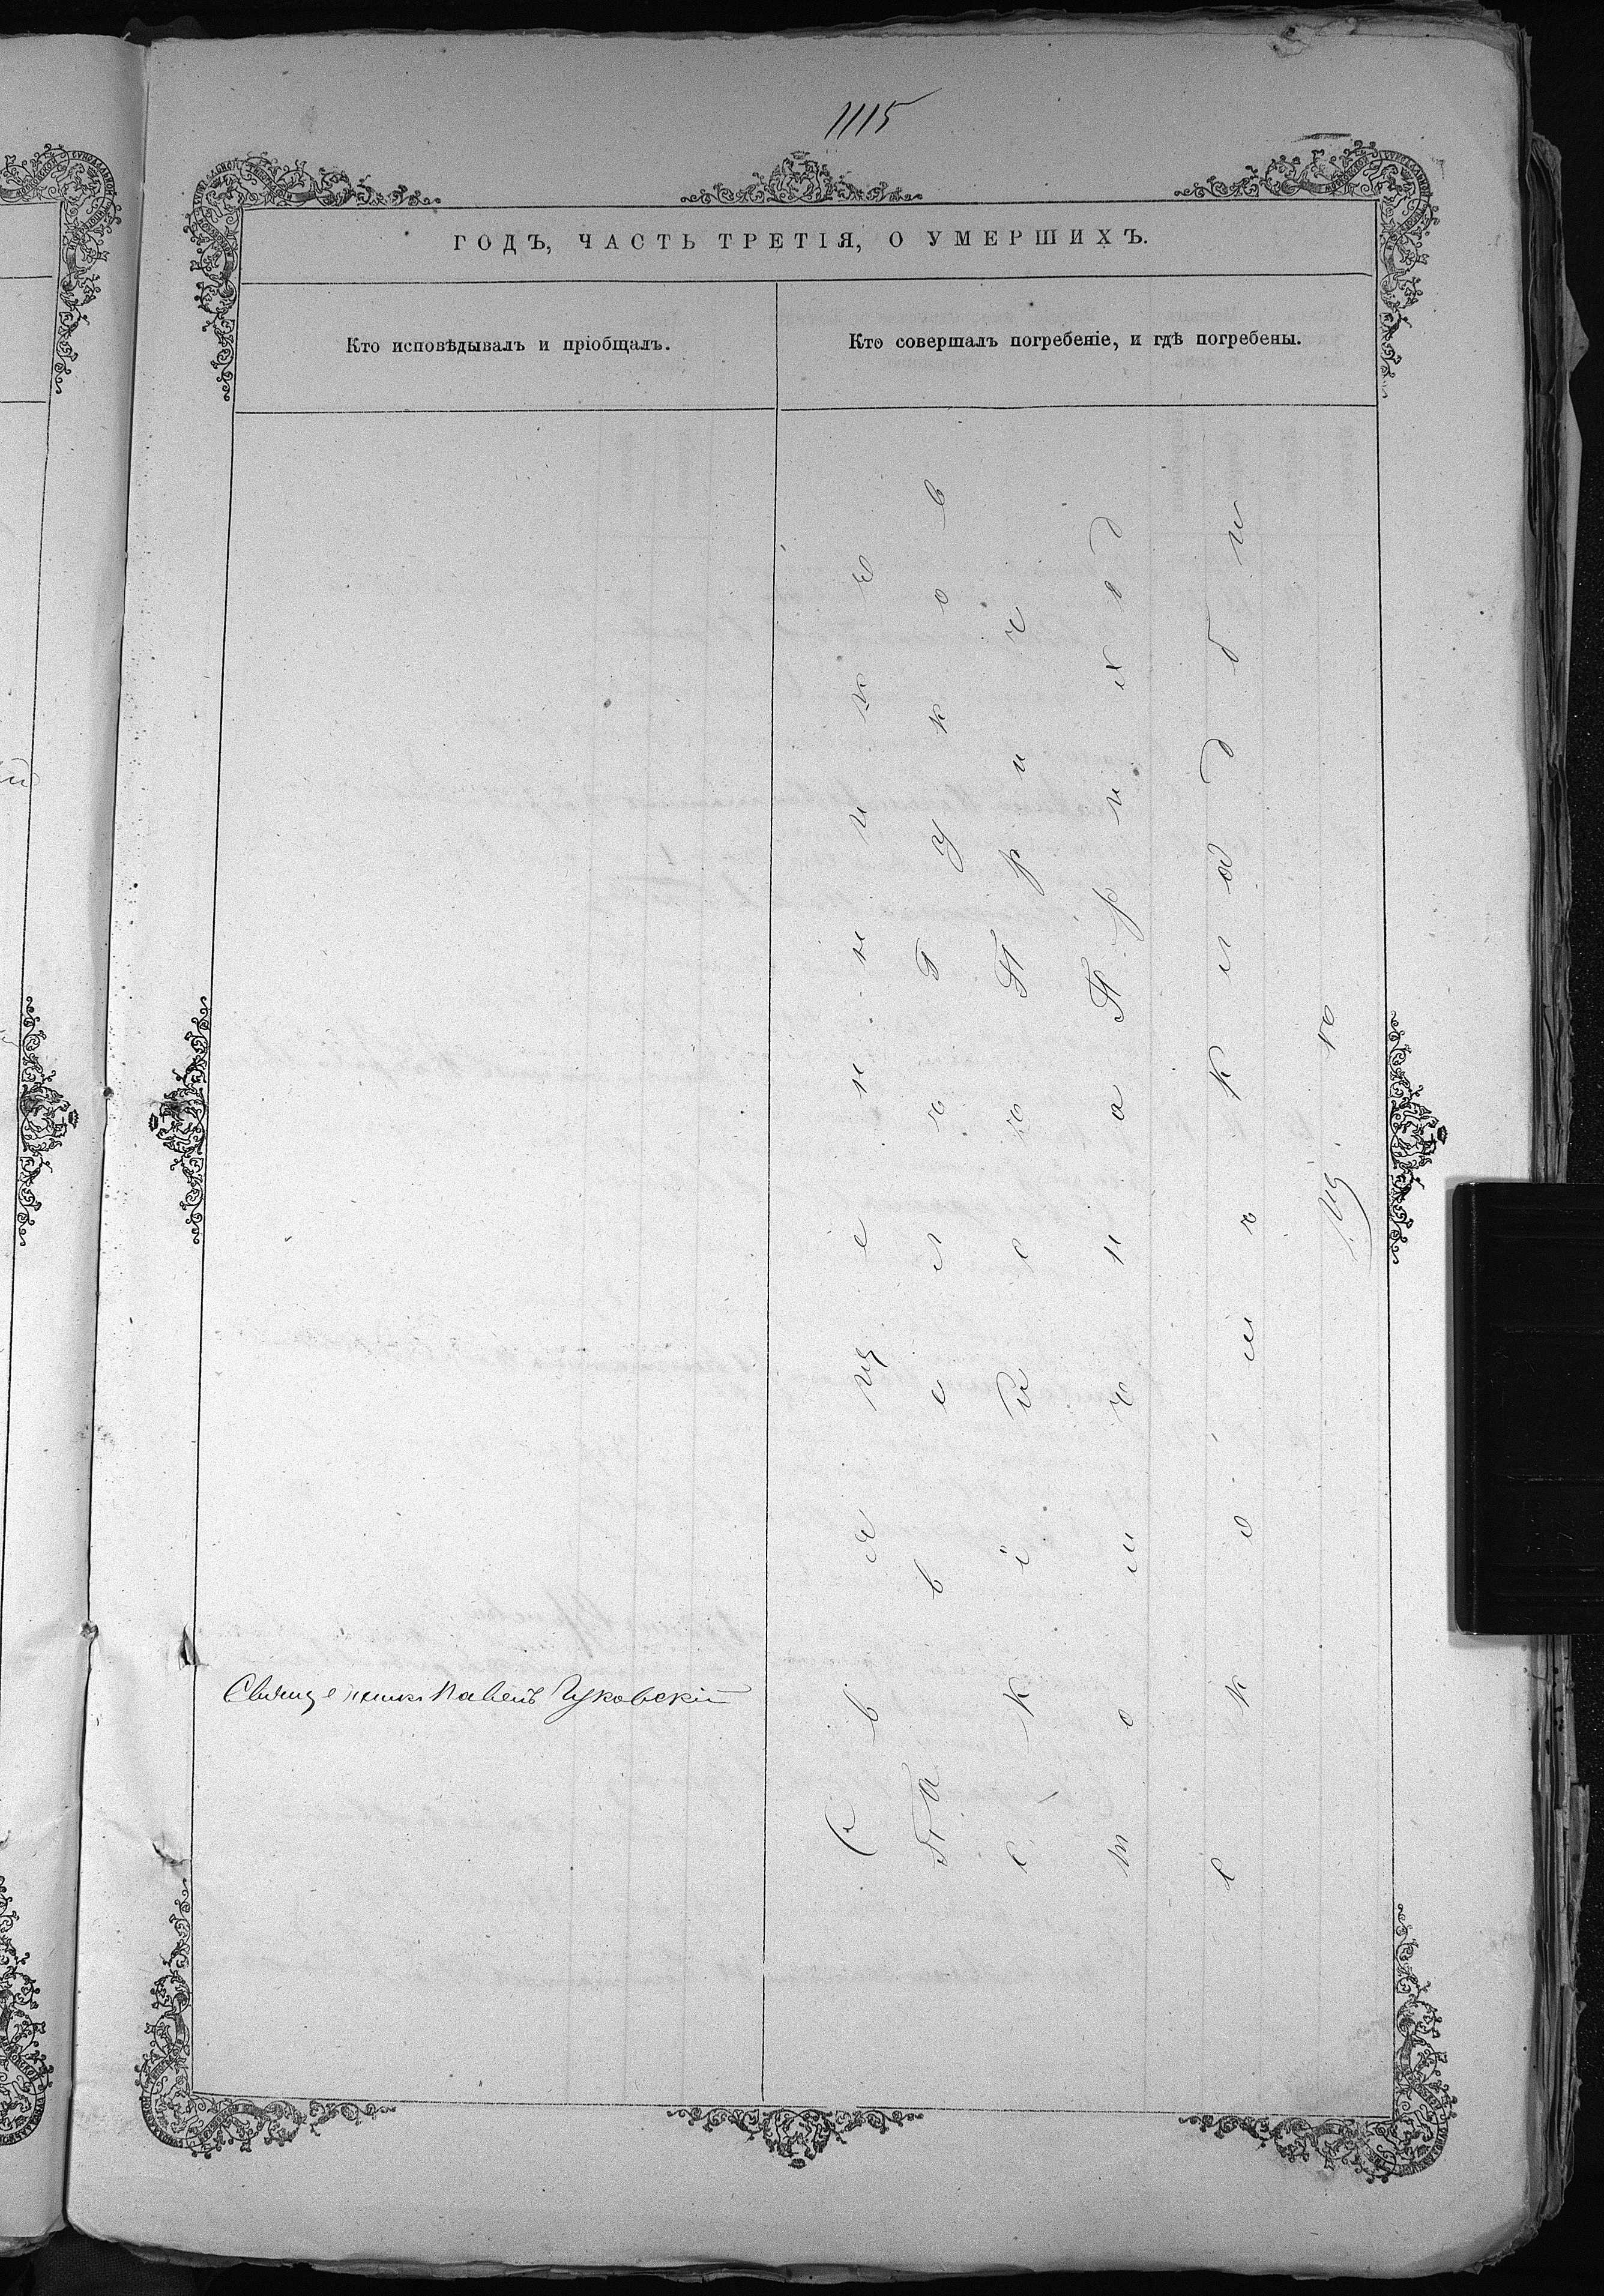 1115
ГОДЪ, ЧАСТЬ ТРЕТІЯ, О УМЕРШИХЪ.
Кто исповѣдывалъ и пріобщалъ.
Кто совершалъ погребеніе, и гдѣ погребены.
Священникъ Павелъ Гуковскій
Священникъ
Павелъ Гуков
скій съ Прич
томъ на Приход
скомъ Кладби
щѣ